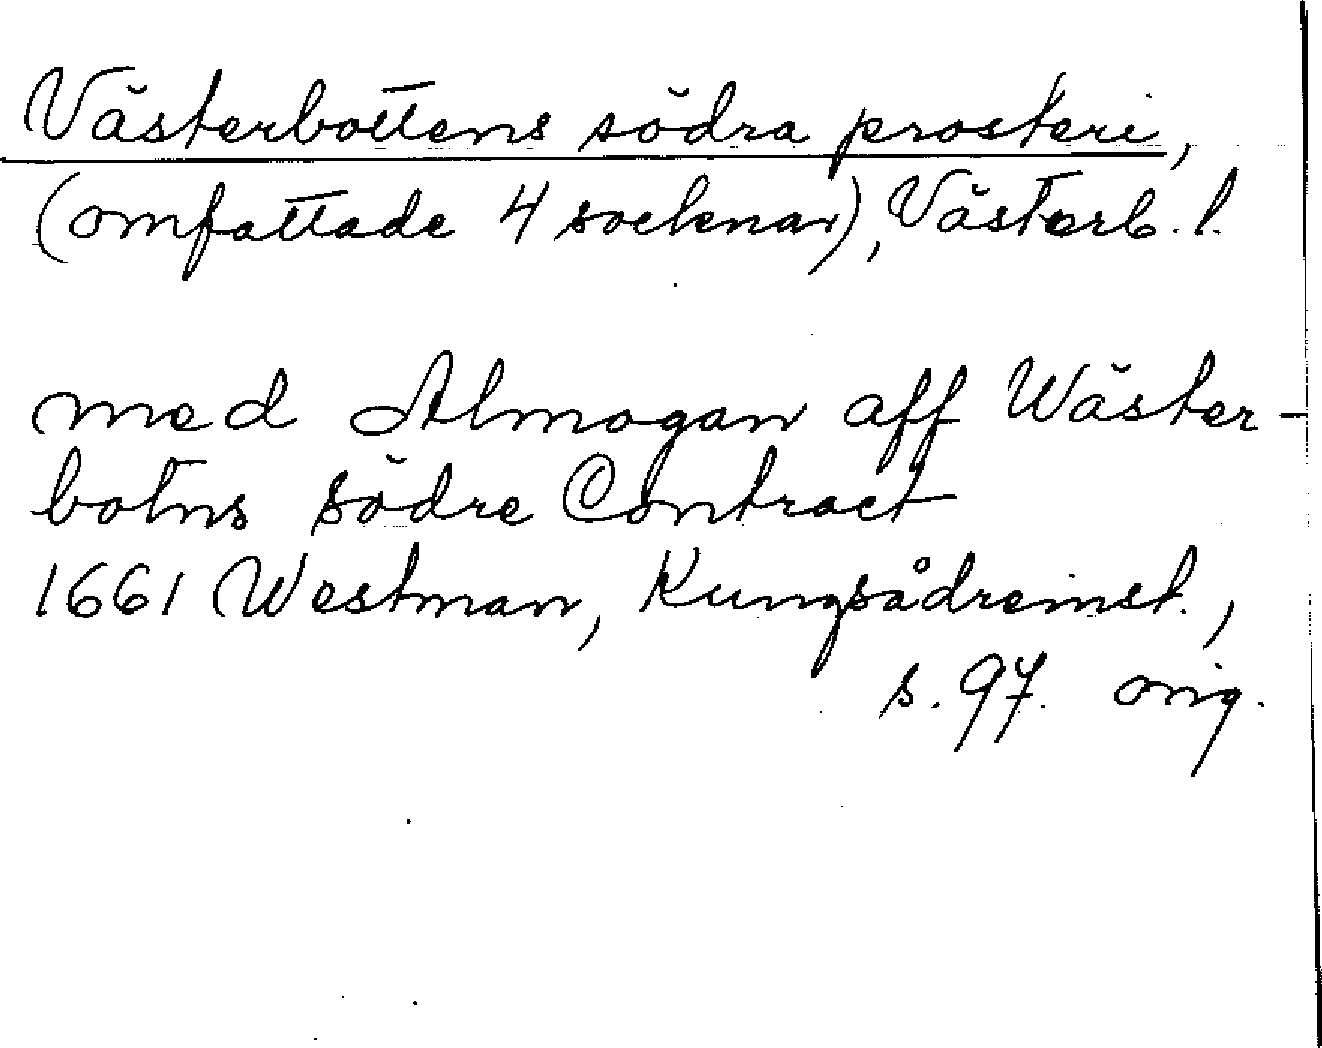 Västerbottens södra prosteri,
(omfattade 4 socknar), Västerb. l.
med Almogan aff Wäster-
botns södre Contract
1661 Westman, Kungsådreinst.,
s. 97. orig.